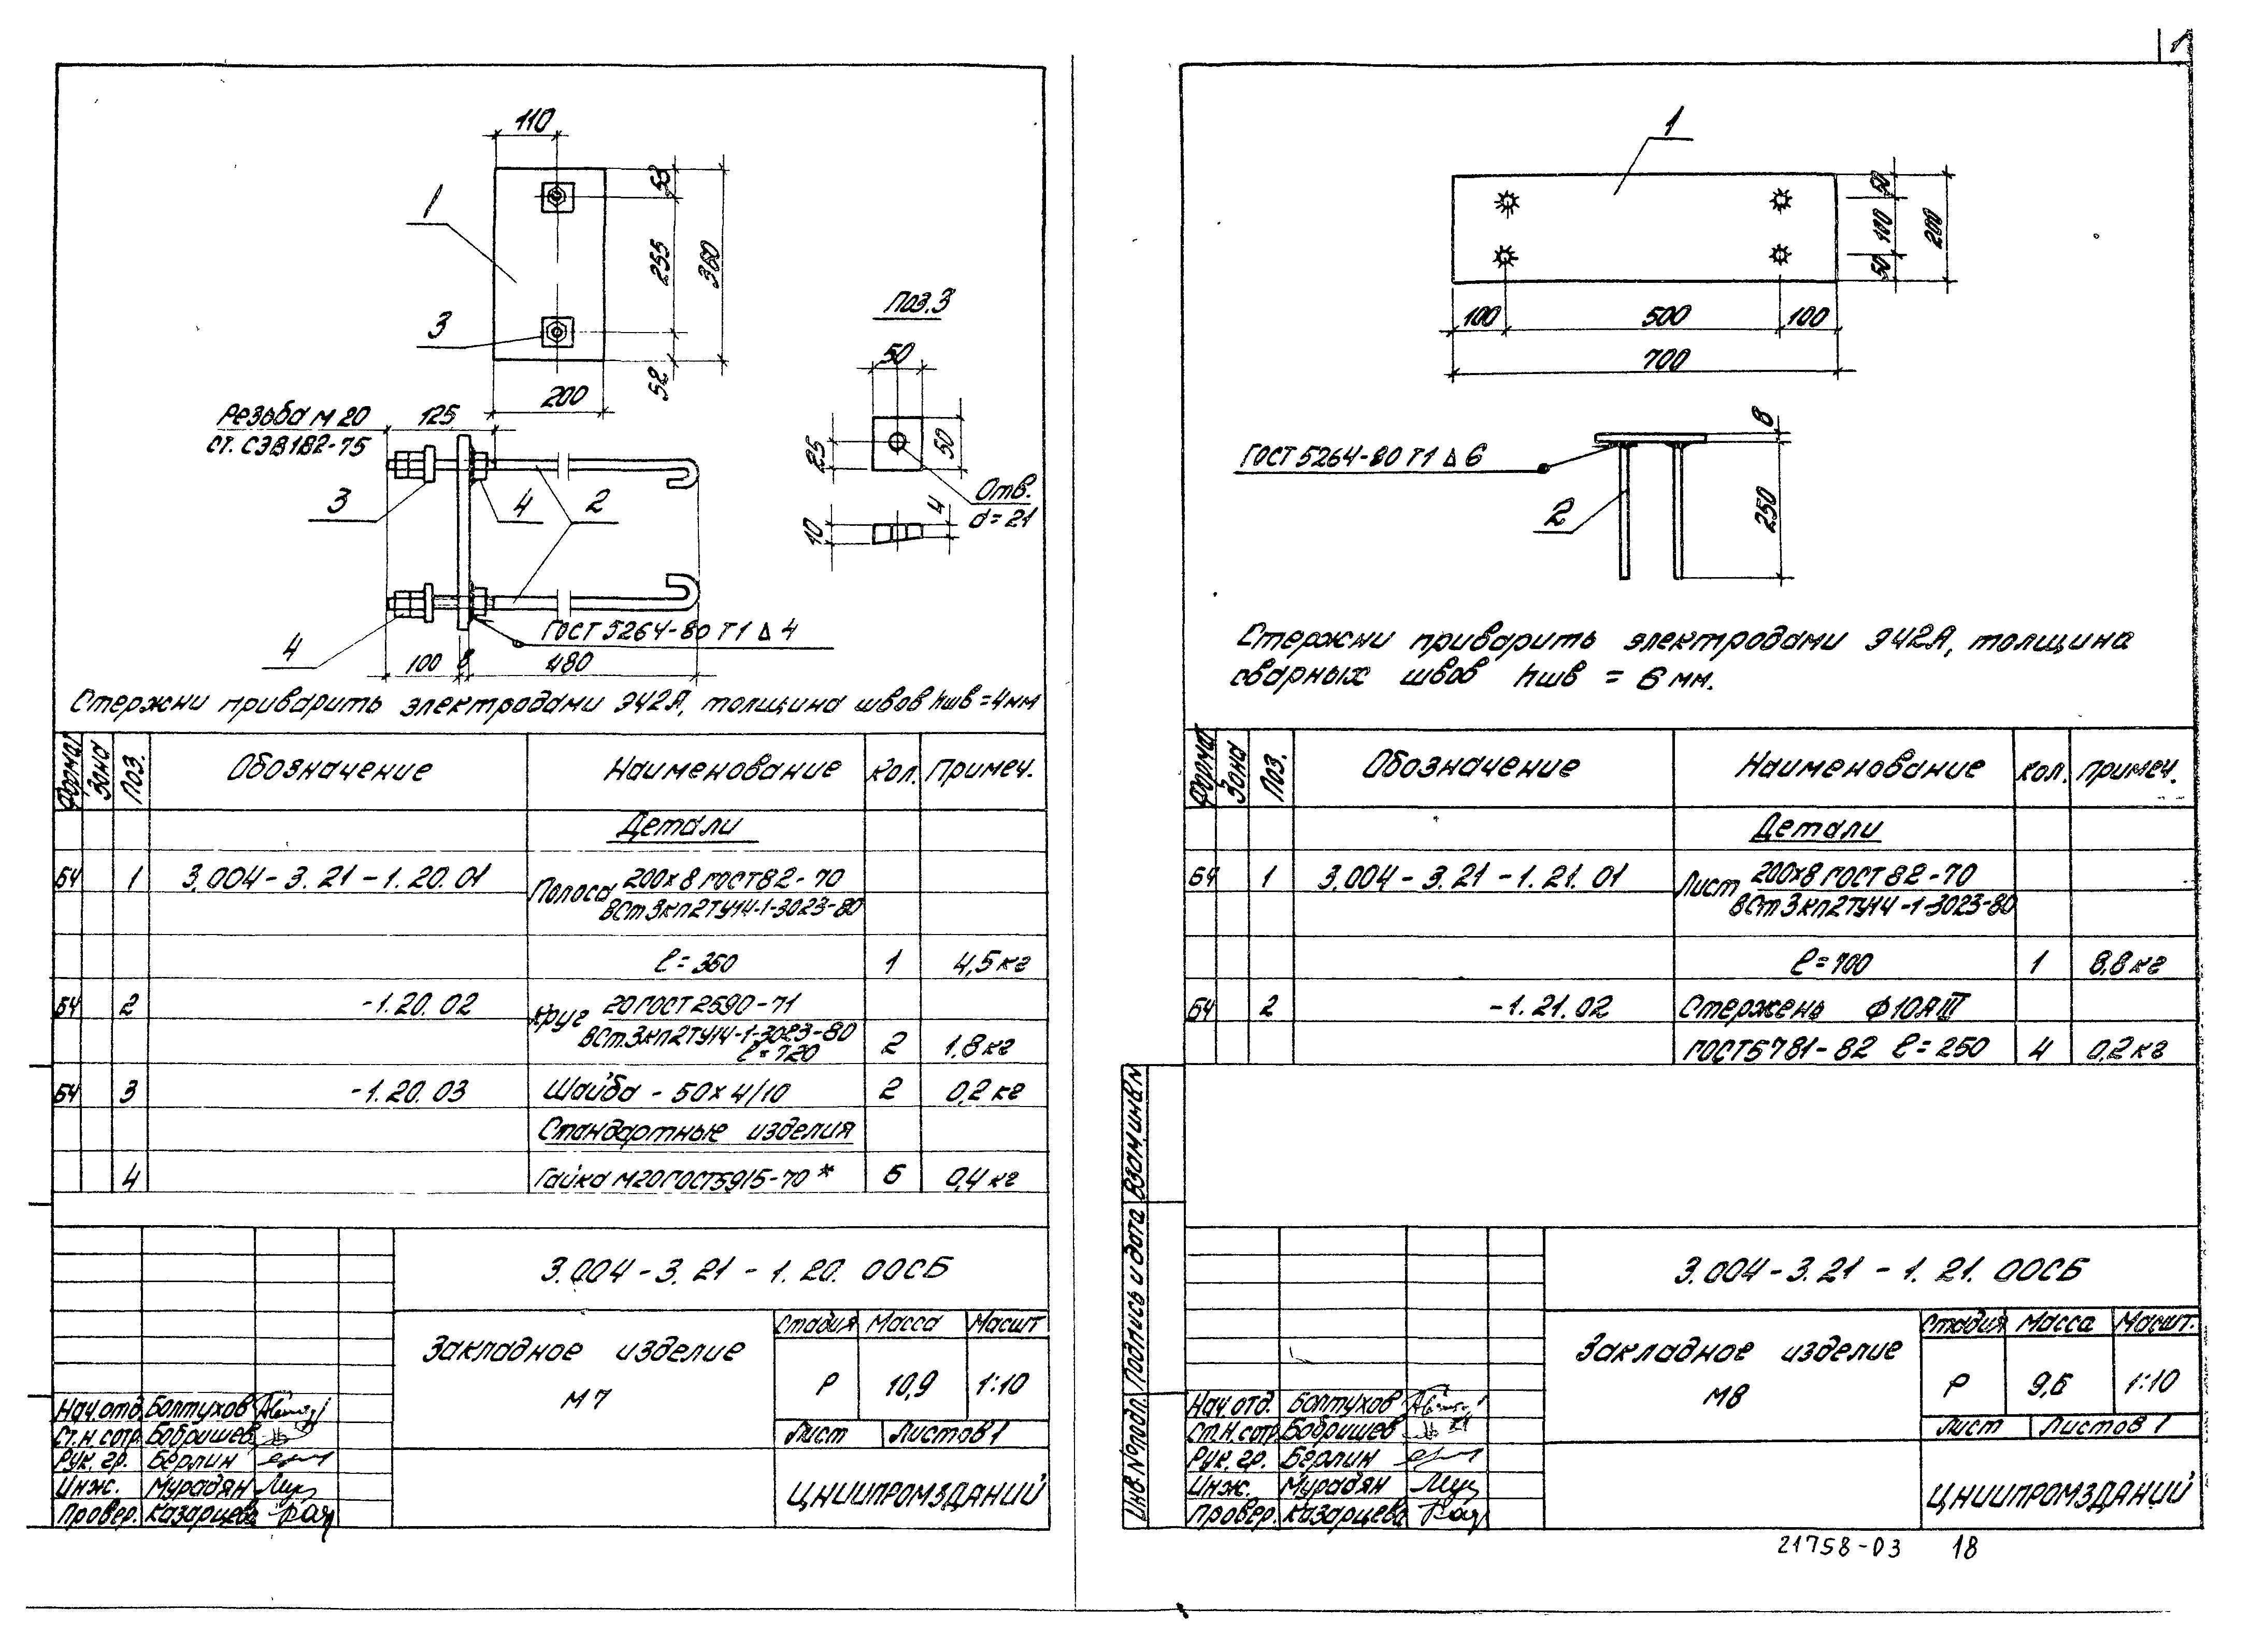 1
110
53
1
255
360
3
52
200
Поз.3
50
25
50
Отв.
d=21
10
4
Резьба М 20
ст. СЭВ182-75
125
3
4
2
4
ГОСТ 5264-80 Т1 Δ 4
100
8
480
Стержни приварить электродами Э42А, толщина швов hшв=4мм
Формат Зона Поз. Обозначение Наименование Кол. Примеч.
Детали
БЧ 1 3.004-3.21-1.20.01 Полоса 200х8 ГОСТ82-70
ВСт3кп2ТУ14-1-3023-80
ℓ=360 1 4,5кг
БЧ 2 -1.20.02 Круг 20ГОСТ2590-71
ВСт.3кп2ТУ14-1-3023-80
ℓ=720 2 1,8кг
БЧ 3 -1.20.03 Шайба - 50х4/10 2 0,2кг
Стандартные изделия
4 Гайка М20ГОСТ5915-70* 6 0,4кг
3.004-3.21-1.20.00СБ
Закладное изделие
М7
Стадия Масса Масшт
Р 10,9 1:10
Лист Листов 1
Нач.отд. Болтухов
Ст.н.сотр. Бобришев
Рук. гр. Берлин
Инж. Мурадян
Провер. Казарцева
ЦНИИПРОМЗДАНИЙ
1
50
100
50
200
100
500
100
700
ГОСТ 5264-80 Т1 Δ 6
8
2
250
Стержни приварить электродами Э42А, толщина
сварных швов hшв = 6мм.
Формат Зона Поз. Обозначение Наименование Кол. Примеч.
Детали
БЧ 1 3.004-3.21-1.21.01 Лист 200х8 ГОСТ82-70
ВСт3кп2ТУ14-1-3023-80
ℓ=700 1 8,8кг
БЧ 2 -1.21.02 Стержень Ф10АIII
ГОСТ5781-82 ℓ=250 4 0,2кг
Инв.№подл. Подпись и дата Взам.инв.№
3.004-3.21-1.21.00СБ
Закладное изделие
М8
Стадия Масса Масшт.
Р 9,6 1:10
Лист Листов 1
Нач.отд. Болтухов
Ст.н.сотр. Бобришев
Рук. гр. Берлин
Инж. Мурадян
Провер. Казарцева
ЦНИИПРОМЗДАНИЙ
21758-03 18